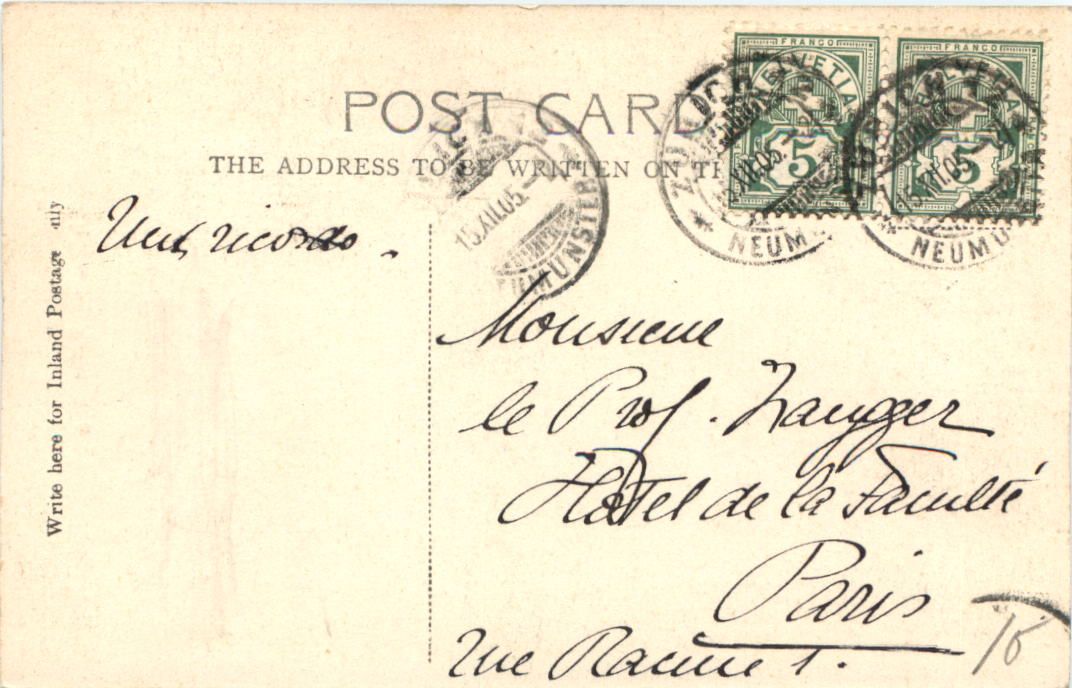 POST CARD
THE ADDRESS TO BE WRITTEN ON TH
Write here for Inland Postage only
FRANCO
HELVETIA
5
FRANCO
HELVETIA
5
ZÜRICH
15.XII.05.-7
NEUMÜ
ZÜRICH
15.XII.05.-7
NEUMÜ
15.XII.05.-
NEUMÜNSTER
ricordo
Monsieur
le Prof. Zangger
Hôtel de la Faculté
Paris
rue Racine 1.